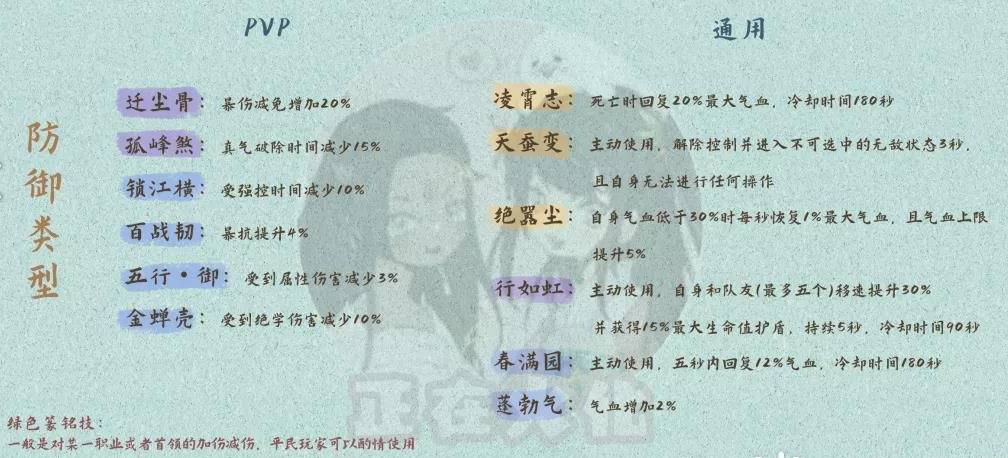 PVP
通用
防御类型
迁尘骨：暴伤减免增加20%
孤峰煞：真气破除时间减少15%
锁江横：受强控时间减少10%
百战韧：暴抗提升4%
五行·御：受到属性伤害减少3%
金蝉壳：受到绝学伤害减少10%
凌霄志：死亡时回复20%最大气血，冷却时间180秒
天蚕变：主动使用，解除控制并进入不可选中的无敌状态3秒，
且自身无法进行任何操作
绝嚣尘：自身气血低于30%时每秒恢复1%最大气血，且气血上限
提升5%
行如虹：主动使用，自身和队友(最多五个)移速提升30%
并获得15%最大生命值护盾，持续5秒，冷却时间90秒
春满园：主动使用，五秒内回复12%气血，冷却时间180秒
蓬勃气：气血增加2%
正在天仙
绿色篆铭技：
一般是对某一职业或者首领的加伤减伤，平民玩家可以酌情使用